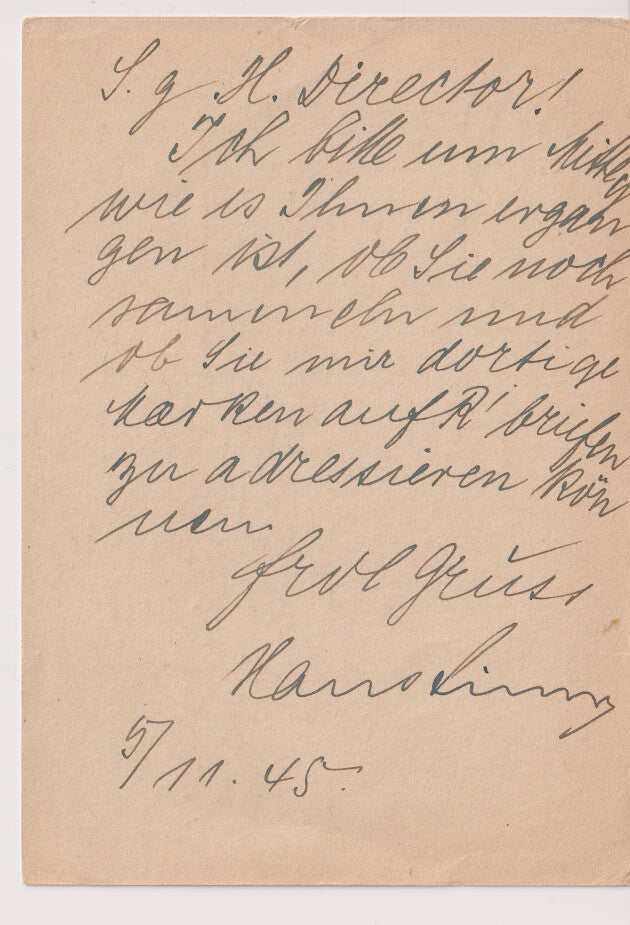 S. g. H. Director!
Ich bitte um
wie es Ihnen ergan
gen ist, ob Sie noch
sammeln und
ob Sie mir dortige
Marken auf R' briefen
zu adressieren kön
nen.
Frdl Gruss
Hans
5/11. 45.